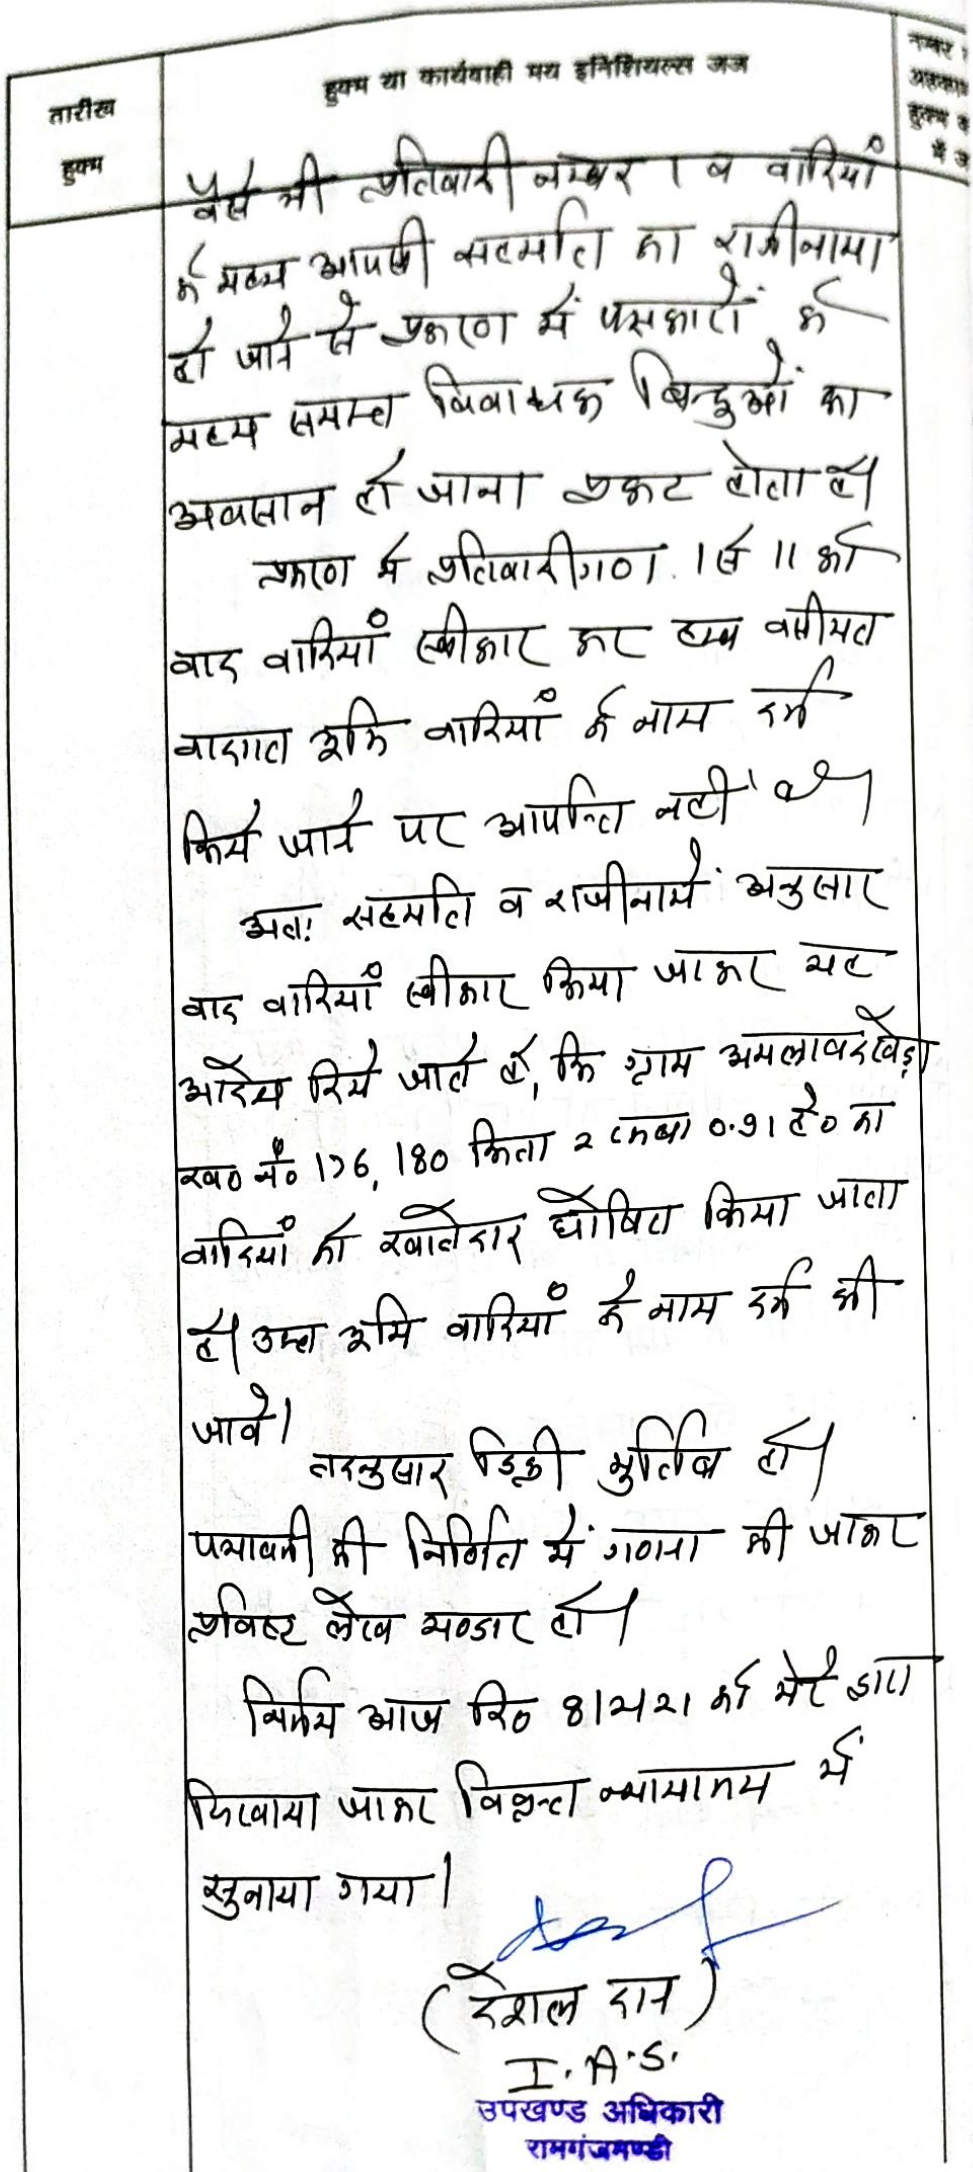 तारीख
हुक्म
हुक्म या कार्यवाही मय इनिशियल्स जज
नम्बर
हुक्म
वैसे भी प्रतिवादी नम्बर 1 व वादियां
के मध्य आपसी सहमति का राजीनामा
हो जाने से प्रकरण में पक्षकारों के
मध्य समस्त विवाधक बिन्दुओं का
अवसान हो जाना प्रकट होता है।
प्रकरण में प्रतिवादीगण 1 से 11 को
वाद वादियां स्वीकार कर वसीयत
भूमि वादियां के नाम दर्ज
किये जाने पर आपत्ति नहीं है।
अतः सहमति व राजीनामें अनुसार
वाद वादियां स्वीकार किया जाकर यह
आदेश दिये जाते है, कि ग्राम अमलावदखेड़ा
ख0 नं0 176, 180 किता 2 रकबा 0.91 है0 का
वादियां को खातेदार घोषित किया जाता
है। उक्त भूमि वादियां के नाम दर्ज की
जावे।
तदनुसार डिक्री मुर्तिब हो।
पत्रावली की निर्णित में गणना की जाकर
प्रविष्ट लेख भण्डार हो।
निर्णय आज दि0 8/2/21 को मेरे द्वारा
लिखाया जाकर न्यायालय में
सुनाया गया।
(देशल दान)
I.A.S.
उपखण्ड अधिकारी
रामगंजमण्डी